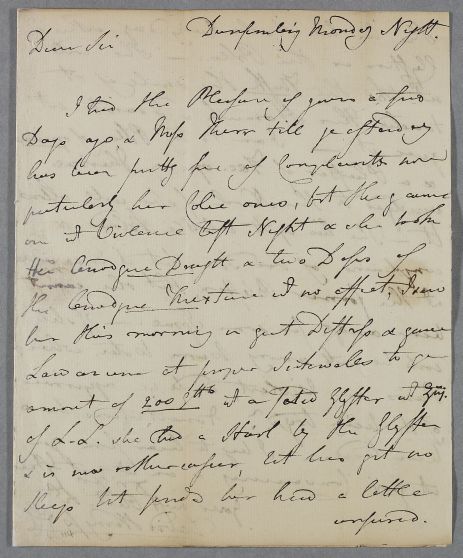 Dunfermling Monday Night.
Dear Sir
I had the Pleasure of yours a few
Days ago, & Miss till ye afterday
has been pretty free of Complaints more
particularly her Colic ones, but they came
on wt Violence last Night & she took
Her Anodyne Draught & two Doses of
the Anodyne Mixture wt no effect, I saw
her this morning in great Distress & gave
Laudanum at proper Intervales to ye
amount of 200 gtts wt a Glyster wt
of L.L. she had a Stool by the Glyster
& is now rather easier, but has got no
sleep but finds her head a little
confused.